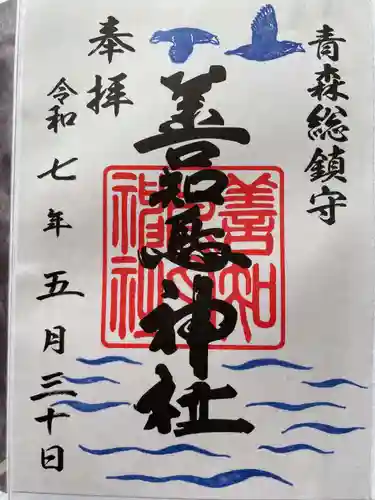 青森総鎮守
善知鳥神社
奉拝
令和七年五月三十日
善知鳥神社